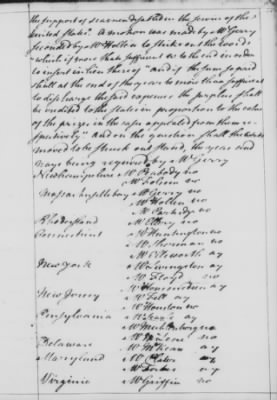 the support of seamen disabled in the service of the
united states. A motion was made by Mr Gerry
seconded by Mr Holten to strike out the words
which if more than sufficient &c to the end in order
to insert in lieu thereof "and if the sum so paid
shall at the end of the year be more than sufficient
to discharge the said expences the surplus shall
be credited to the states in proportion to the value
of the prizes in the cases appealed from them re-
spectively" and on the question shall the words
moved to be struck out stand, the yeas and
nays being required by Mr Gerry
Newhampshire Mr Peabody no
Mr Folsom no
Massachusettsbay Mr Gerry no
Mr Holten no
Mr Partridge no
Rhodeisland Mr Ellery no
Connecticut Mr Huntington no
Mr Sherman no
Mr Ellsworth ay
New York Mr Livingston ay
Mr Floyd no
Mr l'Hommedieu ay
New Jersey Mr Fell ay
Mr Houston no
Pensylvania Mr Searle ay
Mr Muhlenberg no
Mr McLene no
Delaware Mr McKean ay
Maryland Mr Plater ay
Mr Forbes ay
Virginia Mr Griffin no